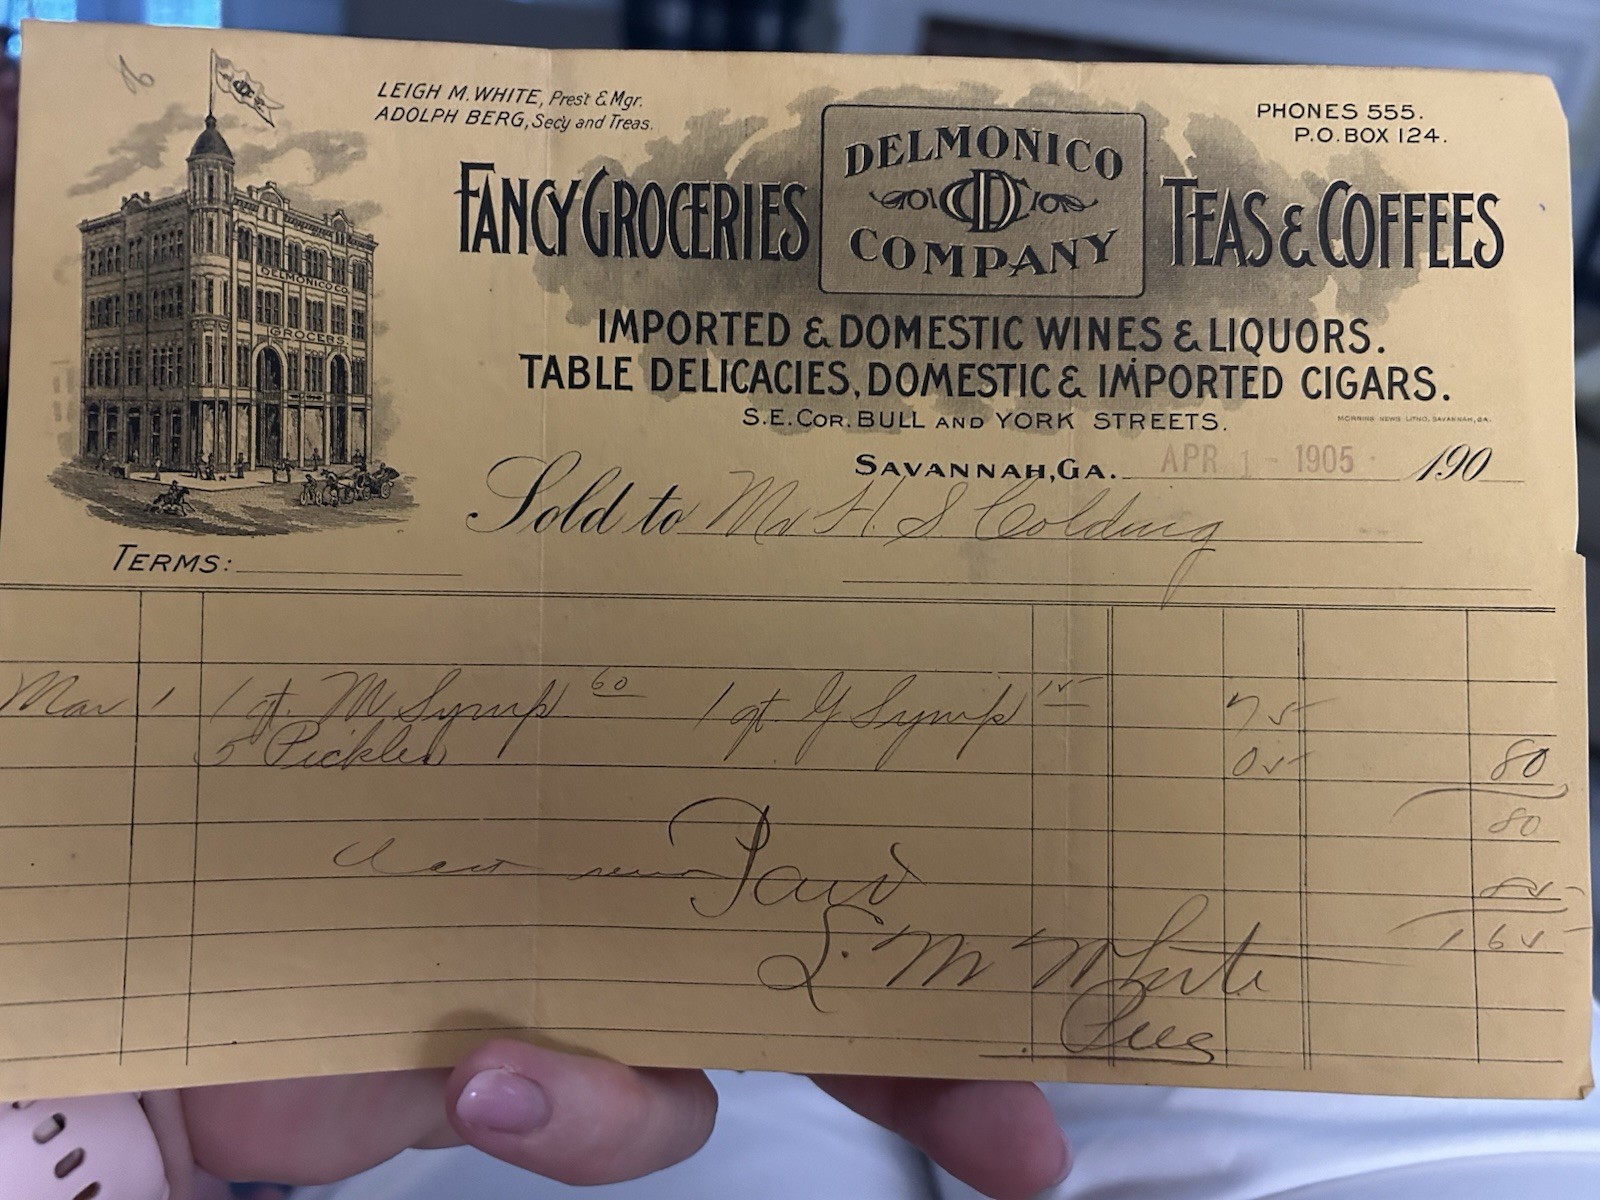 LEIGH M. WHITE, Pres't & Mgr.
ADOLPH BERG, Sec'y and Treas.
PHONES 555.
P.O. BOX 124.
DELMONICO
DC
COMPANY
FANCY GROCERIES
TEAS & COFFEES
DELMONICO CO.
GROCERS.
IMPORTED & DOMESTIC WINES & LIQUORS.
TABLE DELICACIES, DOMESTIC & IMPORTED CIGARS.
S.E. COR. BULL AND YORK STREETS.
MORNING NEWS LITHO, SAVANNAH, GA.
SAVANNAH, GA. APR 1 - 1905 190
Sold to Mr H. S. Colding
TERMS:
Mar 1 1 qt. M Syrup 60 1 qt. G Syrup 15 75
5 Pickles 05 80
80
Paid 85
1 65
L. M White
Pres